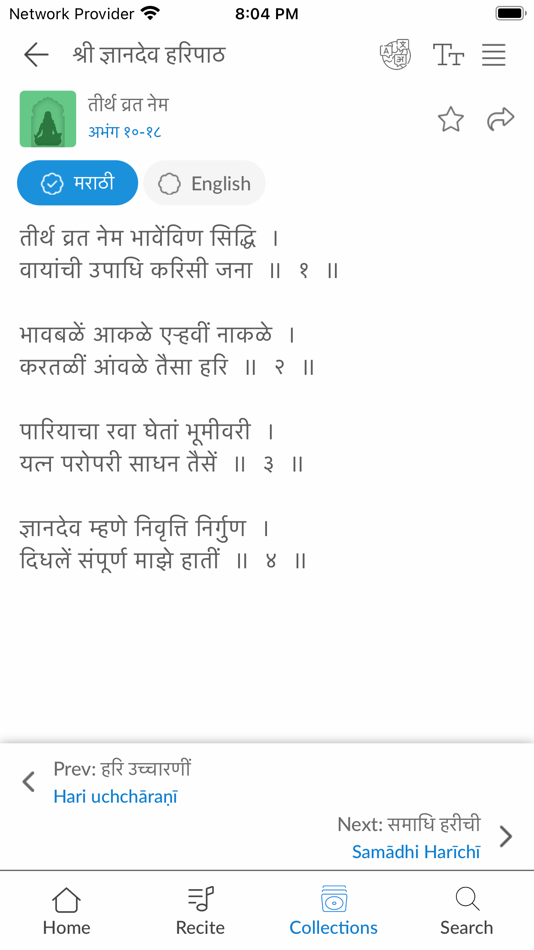 Network Provider 8:04 PM
श्री ज्ञानदेव हरिपाठ
तीर्थ व्रत नेम
अभंग १०-१८
मराठी English
तीर्थ व्रत नेम भावेंविण सिद्धि ।
वायांची उपाधि करिसी जना ॥ १ ॥
भावबळें आकळे एऱ्हवीं नाकळे ।
करतळीं आंवळे तैसा हरि ॥ २ ॥
पारियाचा रवा घेतां भूमीवरी ।
यत्न परोपरी साधन तैसें ॥ ३ ॥
ज्ञानदेव म्हणे निवृत्ति निर्गुण ।
दिधलें संपूर्ण माझे हातीं ॥ ४ ॥
Prev: हरि उच्चारणीं
Hari uchchāraṇī
Next: समाधि हरीची
Samādhi Harīchī
Home Recite Collections Search